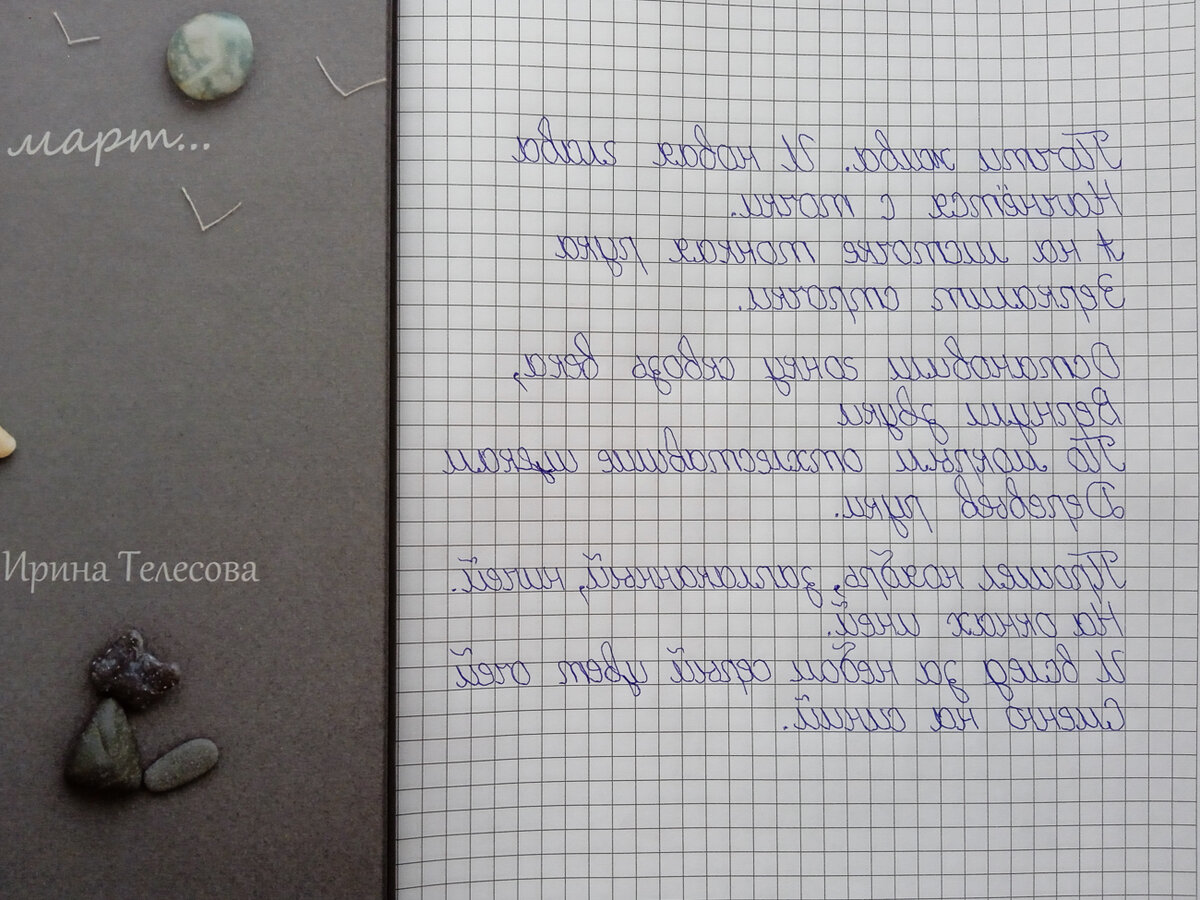 март...
Ирина Телесова
Почти жива. И новая глава
Начнётся с точки.
А на листочке тонкая рука
Зеркалит строчки.
Остановит гонку сквозь века,
Вернут звуки
По мокрым отхлеставшие щекам
Деревьев руки.
Прошёл ноябрь, заплаканный, ничей.
На окнах иней.
И вслед за небом серый цвет очей
Сменю на синий.